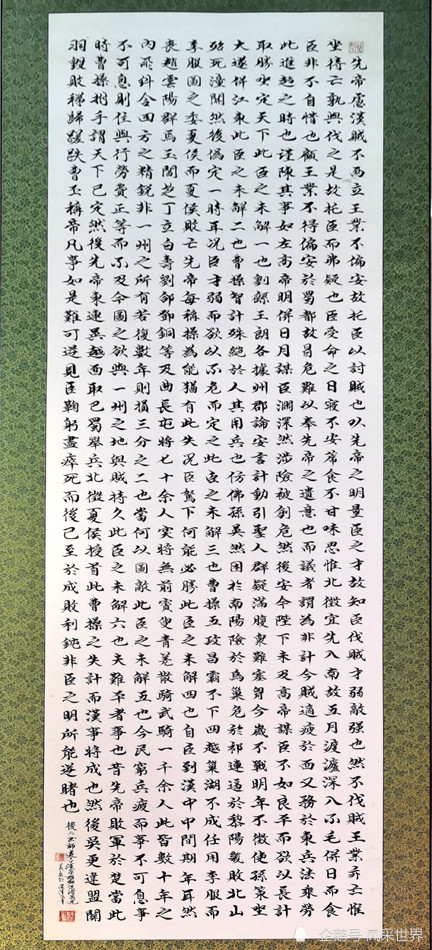 先帝慮漢賊不兩立王業不偏安故托臣以討賊也以先帝之明量臣之才故知臣伐賊才弱敵強也然不伐賊王業亦亡惟
坐待亡孰與伐之是故托臣而弗疑也臣受命之日寢不安席食不甘味思惟北徵宜先入南故五月渡瀘深入不毛併日而食
臣非不自惜也顧王業不得偏安於蜀都故冒危難以奉先帝之遺意也而議者謂為非計今賊適疲於西又務於東兵法乘勞
此進趨之時也謹陳其事如左高帝明併日月謀臣淵深然涉險被創危然後安今陛下未及高帝謀臣不如良平而欲以長計
取勝坐定天下此臣之未解一也劉繇王朗各據州郡論安言計動引聖人群疑滿腹衆難塞胸今歲不戰明年不徵使孫策坐
大遂併江東此臣之未解二也曹操智計殊絕於人其用兵也仿佛孫吳然困於南陽險於烏巢危於祁連逼於黎陽幾敗北山
殆死潼關然後偽定一時耳況臣才弱而欲以不危而定之此臣之未解三也曹操五攻昌霸不下四越巢湖不成任用李服而
李服圖之委夏侯而夏侯敗亡先帝每稱操為能猶有此失況臣駑下何能必勝此臣之未解四也自臣到漢中中間期年耳然
喪趙雲陽群馬玉閻芝丁立白壽劉郃鄧銅等及曲長屯將七十餘人突將無前賨叟青羌散騎武騎一千餘人此皆數十年之
內所糾合四方之精銳非一州之所有若復數年則損三分之二也當何以圖敵此臣之未解五也今民窮兵疲而事不可息事
不可息則住與行勞費正等而不及今圖之欲與一州之地與賊持久此臣之未解六也夫難平者事也昔先帝敗軍於楚當此
時曹操拊手謂天下已定然後先帝東連吳越西取巴蜀舉兵北徵夏侯授首此曹操之失計而漢事將成也然後吳更違盟關
羽毀敗秭歸蹉跌曹丕稱帝凡事如是難可逆見臣鞠躬盡瘁死而後已至於成敗利鈍非臣之明所能逆睹也
企鹅号